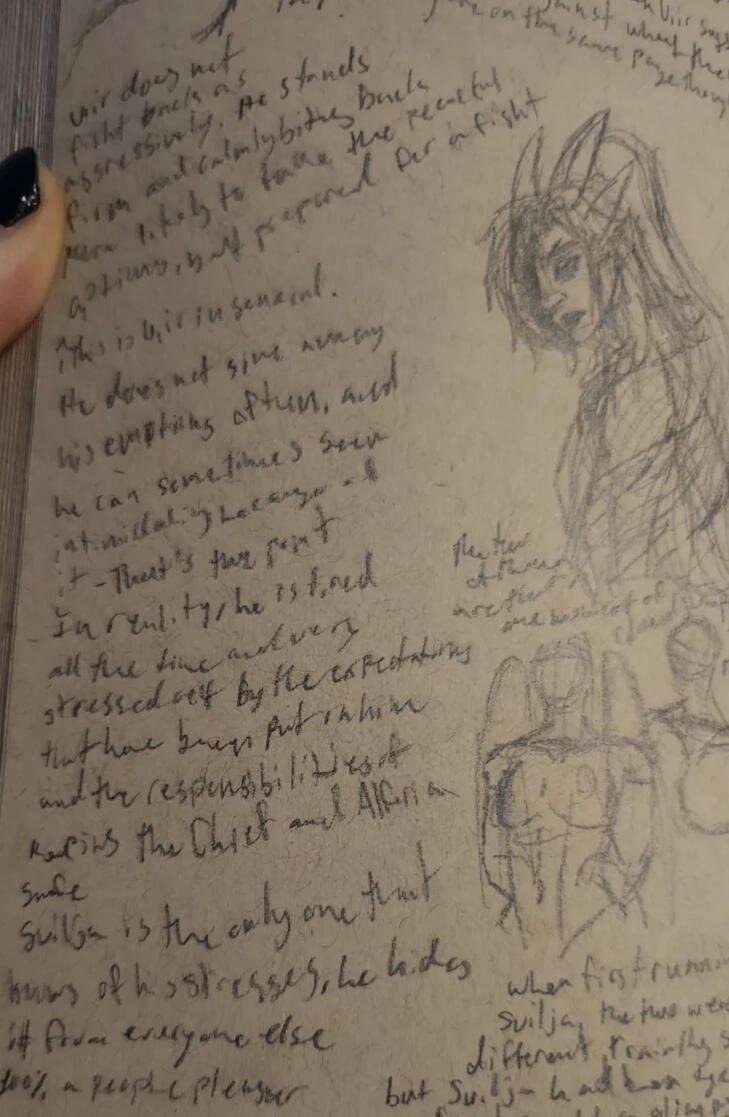 Viir does not
fight back as
aggressively. He stands
firm and calmly bites back
more likely to take the peaceful
options, but prepared for a fight
This is Viir in general.
He does not give away
his emotions often, and
he can sometimes seem
intimidating
it - That's the point
In reality, he is tired
all the time and very
stressed out by the expectations
that have been put on him
and the responsibilities of
keeping the Chief and
safe
Suilja is the only one that
knows of his stresses, he hides
it from everyone else
100% a people pleaser
against what the
on the same page though
The two
are
one
when first running
Suilja, the two were
different training
but Suilja had